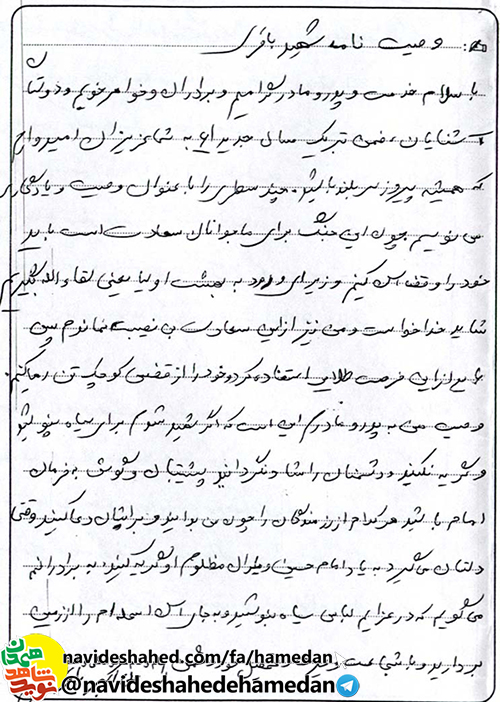 وصیت نامه شهید باقری
با سلام خدمت پدر و مادر گرامیم و برادران و خواهر خویم و دوستان
آشنایان، ضمن تبریک سال جدید به شما عزیزان امیدوارم
که همیشه پیروز سربلند باشید. چند سطری را با عنوان وصیت و یادگاری
می نویسم چون این جنگ برای ما جوانان سعادت است باید
خود را وقف اس کنیم و زیرای ورود به بهشت اولیا یعنی لقاء الله بگیریم
شاید خدا خواست و من نیز از این سعادت بی نصیب نماندم پس
از این فرصت طلایی استفاده کرد و خود را از قفس کوچک تن رها کنم.
وصیت من به پدر و مادرم این است که اگر شهید شوم برای سیاه نپوشید
و گریه نکنید و دشمنان را شاد نگردانید پشتیبان و گوش به فرمان
امام باشید هر کدام از رزمندگان را چون من بدانید و برایشان دعا کنید وقتی
دلتان می گیرد به یاد امام حسین و طفلان مظلوم او گریه کنید، به برادرانم
می گویم که در عزایم لباس سیاه نپوشید و به جای اس اسلحه ام را از زمین
بردارید و با شجاعت
navideshahed.com/fa/hamedan
@navideshahedehamedan
نوید شاهد همدان